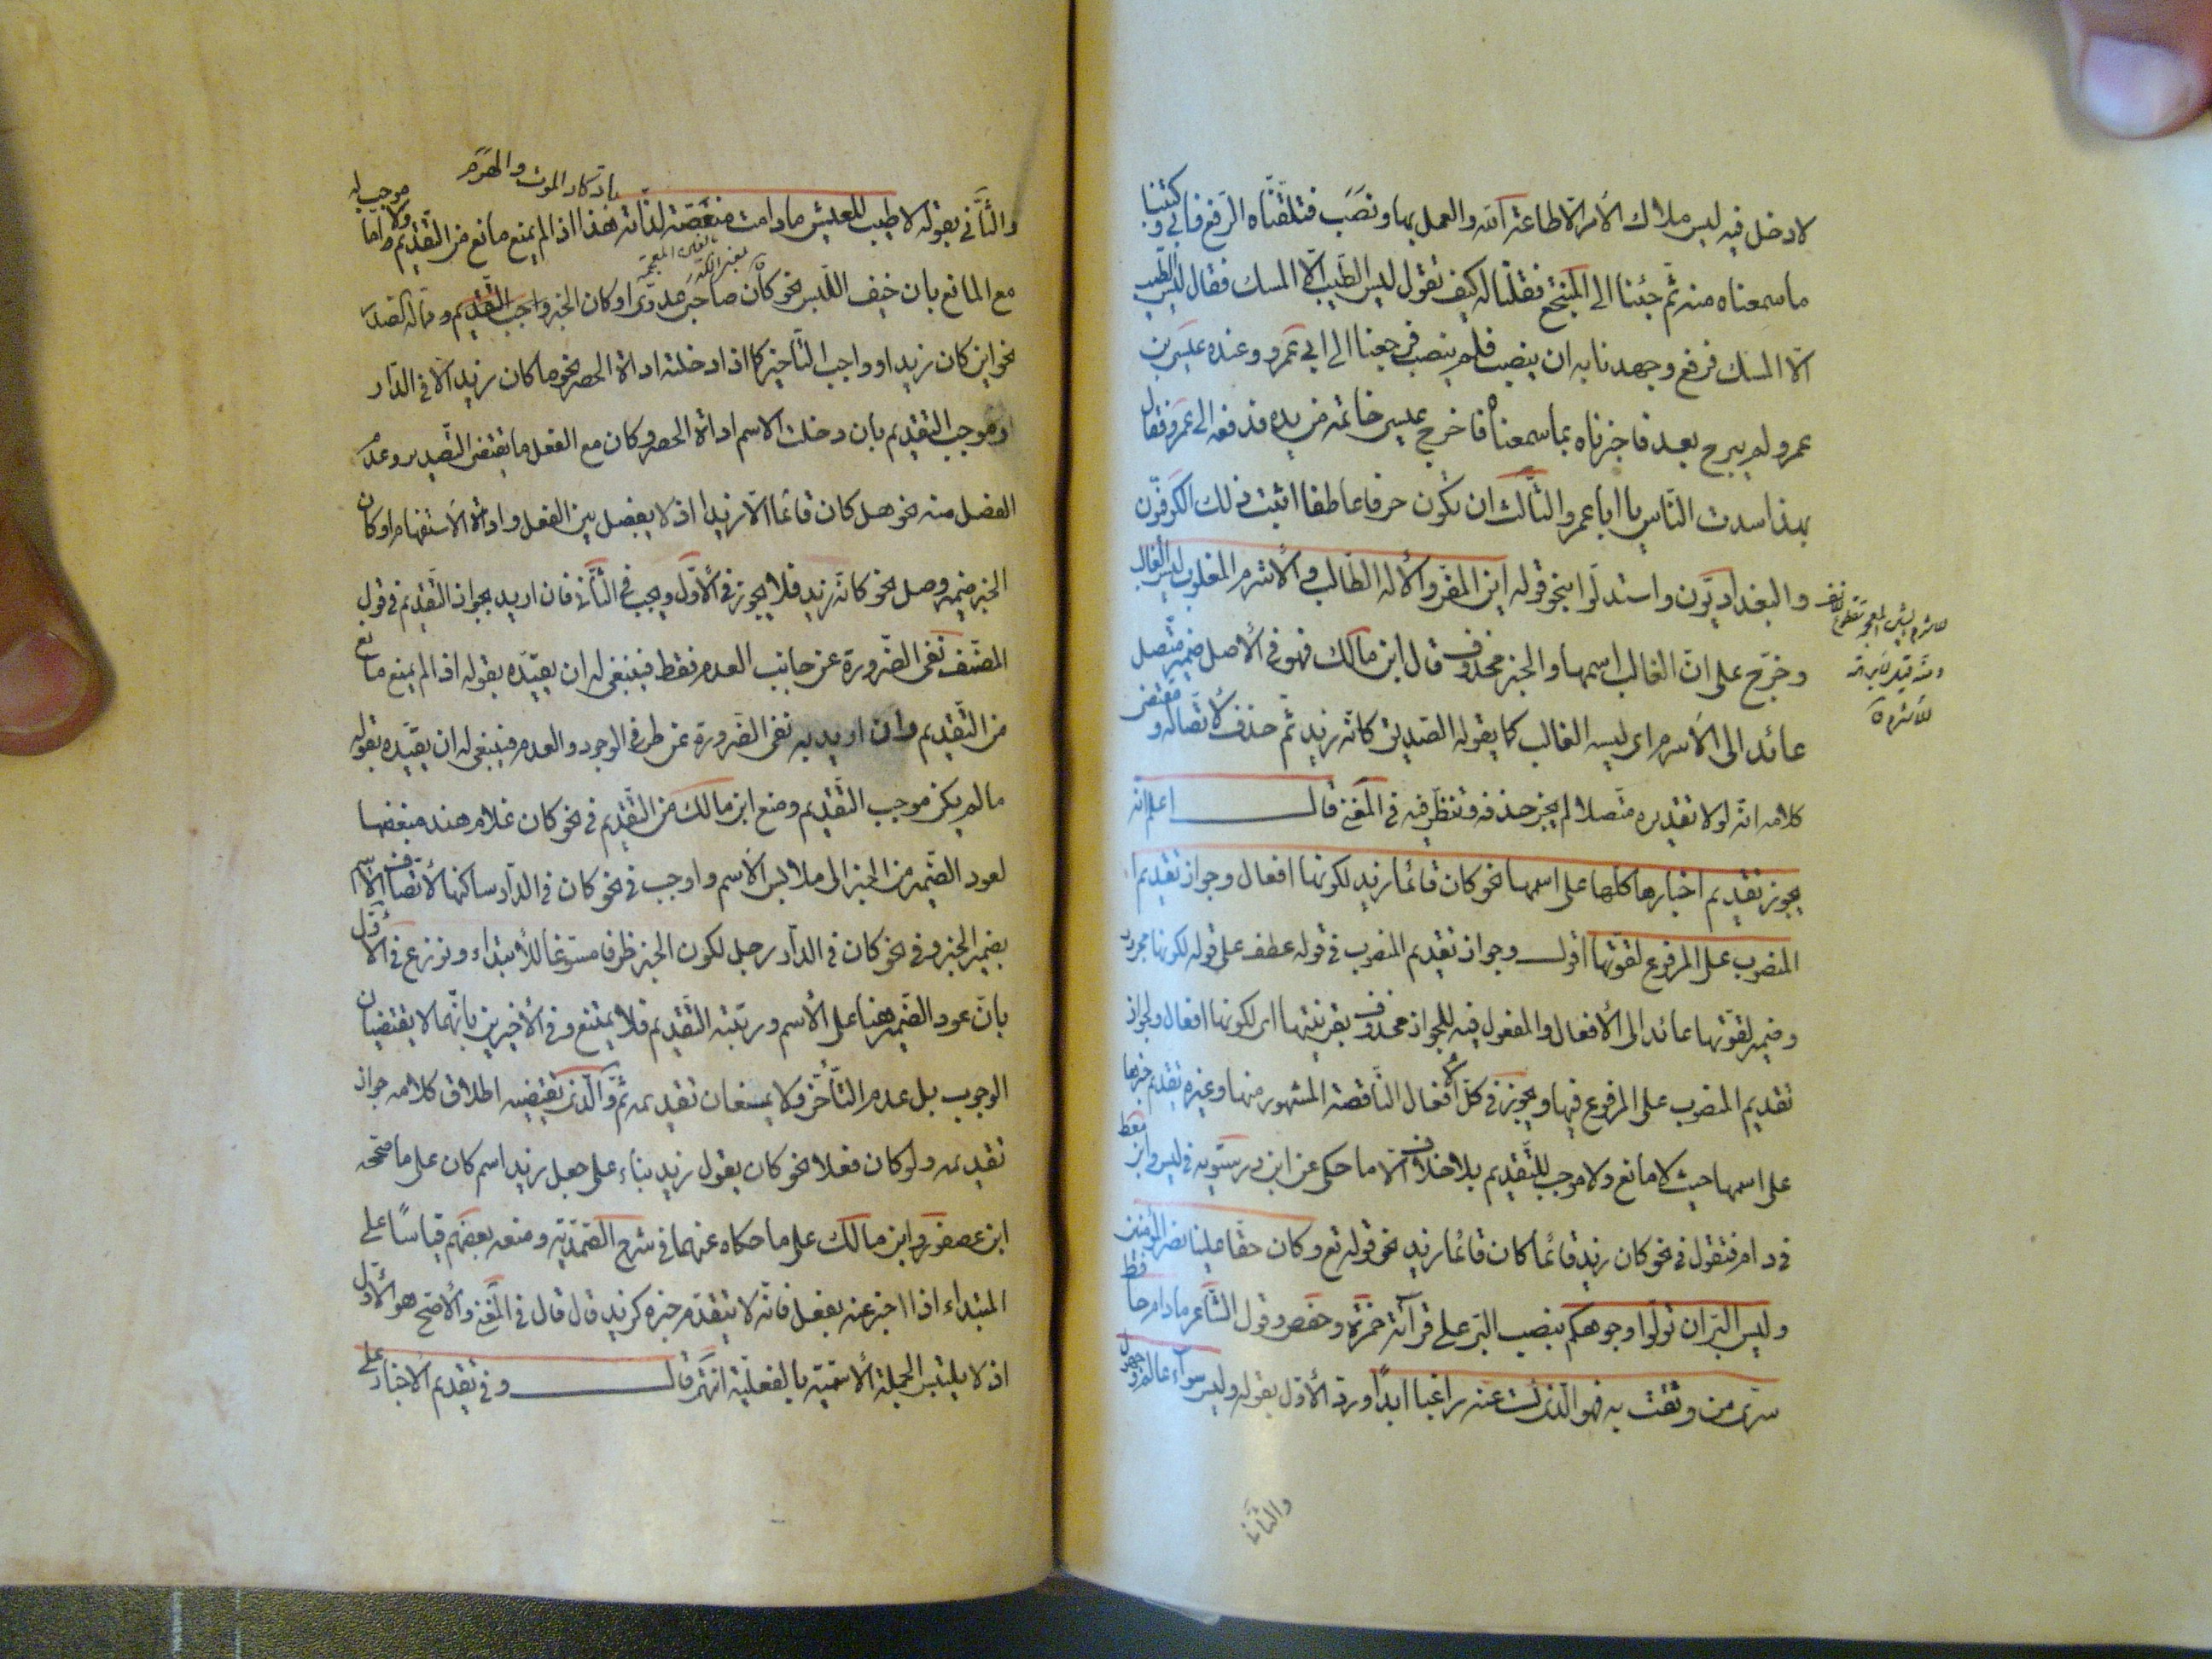 لا دخل فيه ليس ملاك الأمر الّا طاعة اللّه والعمل بها ونصب فتلقّناه الرّفع فابى وكتبنا
ما سمعناه منه ثمّ جئنا الى المنتجع فقلنا له كيف تقول ليس الطّيب الّا المسك فقال ليس الطّيب
الّا المسك فرفع وجهدنا به ان ينصب فلم ينصب فرجعنا الى ابى عمرو وعنده عيسى بن
عمرو لم يبرح بعد فاخبرناه بما سمعناه فاخرج عيسى خاتمه من يده فدفعه الى عمرو فقال
بهذا سدت النّاس يا ابا عمرو الثّالث ان تكون حرفا عاطفا اثبت ذلك الكوفيّون
والبغداديّون واستدلّوا بنحو قوله اين المفرّ والأله الطّالب والأشرم المغلوب ليس الغالب
وخرّج على انّ الغالب اسمها والخبر محذوف قال ابن مالك فهو فى الأصل ضمير متّصل
عائد الى الأشرم اى ليسه الغالب كما يقوله الصّديق كانه زيد ثمّ حذف لأتّصاله ومقتضى
كلامه انّه لولا تقديره متّصلا لم يجز حذفه وتنظّر فيه فى المغنى قال اعلم انّه
يجوز تقديم اخبارها كلّها على اسمها نحو كان قائما زيد لكونها افعال وجواز تقديم
المنصوب على المرفوع لقوّتها اقول وجواز تقديم المنصوب فى قوله عطف على قوله لكونها مجرور
وضمير لقوّتها عائد الى الأفعال والمفعول فيه للجواز محذوف بقرينتها اى لكونها افعال ولجواز
تقديم المنصوب على المرفوع فيها ويجوز فى كلّ الأفعال النّاقصة المشهور منها وغيره تقديم خبرها
على اسمها حيث لا مانع ولا موجب للتّقديم بلا خلاف الّا ما حكى عن ابن درستويه فى ليس وابن معط
فى دام فتقول فى نحو كان زيد قائما كان قائما زيد نحو قوله تع وكان حقّا علينا نصر المؤمنين
وليس البرّ ان تولّوا وجوهكم بنصب البرّ على قرآئة حمزة وحفص وقول الشّاعر ما دام حافظ
سرّى من وثقت به فهو الّذى لست عنه راغبا ابدا وردّ الأوّل بقوله وليس سوآء عالم وجهول
والثّانى
والثّانى بقوله لا طيب للعيش ما دامت منغّصة لذّاته بادّكار الموت والهرم هذا اذا لم يمنع مانع من التّقديم ولا موجب له واما
مع المانع بان خيف اللّبس نحو كان صاحبى عدوّى او كان الخبر واجب التّقديم وماله الصّدر
نحو اين كان زيد او واجب التّأخير كما اذا دخلته اداة الحصر نحو ما كان زيد الّا فى الدّار
او موجب التّقديم بان دخلت الاسم اداة الحصر وكان مع الفعل ما يقتضى التّصدير وعدم
الفصل منه نحو هل كان قائما الّا زيد اذ لا يفصل بين الفعل واداة الأستفهام او كان
الخبر ضمير وصل نحو كانه زيد فلا يجوز فى الأوّل ويجب فى الثّانى فان اريد بجواز التّقديم فى قول
المصنّف نفى الضّرورة عن جانب العدم فقط فينبغى له ان يقيّده بقوله اذا لم يمنع مانع
من التّقديم وان اريد به نفى الضّرورة عن طرفى الوجود والعدم فينبغى له ان يقيّده بقوله
ما لم يكن موجب التّقديم ومنع ابن مالك من التّقديم فى نحو كان غلام هند مبغضها
لعود الضّمير من الخبر الى ملابس الأسم واوجب فى نحو كان فى الدّار ساكنها لأتّصاف الأسم
بضمير الخبر وفى نحو كان فى الدّار رجل لكون الخبر ظرفا مسوّغا للأبتداء ونوزع فى الأوّل
بانّ عود الضّمير هنا على الأسم ورتبته التّقديم فلا يمتنع وفى الأخيرين بانّهما لا يقتضيان
الوجوب بل عدم التّأخّر ولا يمنعان تقديمه ثمّ والّذى يقتضيه اطلاق كلامه جواز
تقديمه ولو كان فعلا نحو كان يقول زيد بناء على جعل زيد اسم كان على ما صحّحه
ابن عصفور وابن مالك على ما حكاه عنهما فى شرح الصّمديّة ومنعه بعضهم قياسًا على
المبتداء اذا اخبر عنه بفعل فانّه لا يتقدّم خبره كزيد قال قال فى المغنى والأصحّ هو الأوّل
اذ لا يلتبس الجملة الأسميّة بالفعليّة انتهى قال وفى تقديم الأخبار على